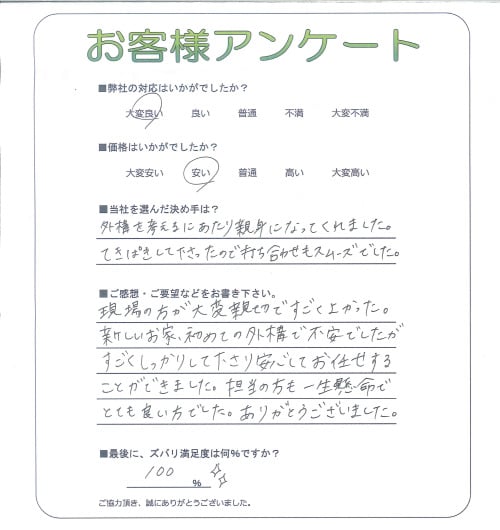 お客様アンケート
■弊社の対応はいかがでしたか？
大変良い 良い 普通 不満 大変不満
■価格はいかがでしたか？
大変安い 安い 普通 高い 大変高い
■当社を選んだ決め手は？
外構を考えるにあたり親身になってくれました。
てきぱきして下さったので打ち合わせもスムーズでした。
■ご感想・ご要望などをお書き下さい。
現場の方が大変親切ですごくよかった。
新しいお家、初めての外構で不安でしたが
すごくしっかりして下さり安心してお任せする
ことができました。担当の方も一生懸命で
とても良い方でした。ありがとうございました。
■最後に、ズバリ満足度は何％ですか？
100 ％
ご協力頂き、誠にありがとうございました。